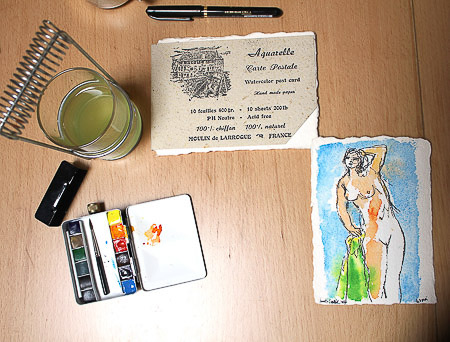 Aquarelle
Carte Postale
Watercolor post card
Hand made paper
10 feuilles 600gr. • 10 sheets 200lb
PH Neutre • Acid free
100% chiffon 100% naturel
MOULIN de LARROQUE FRANCE